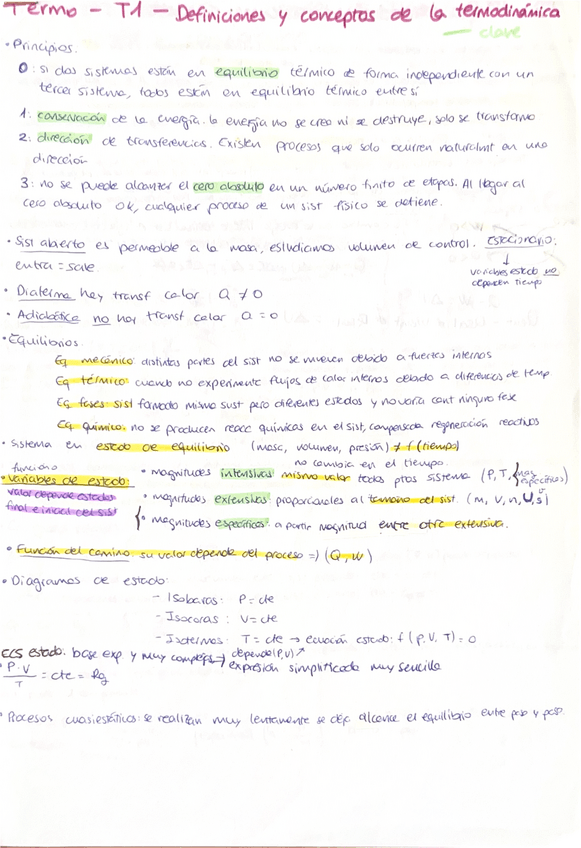 Termo - T1 - Definiciones y conceptos de la termodinámica
— clave
• Principios.
0: si dos sistemas están en equilibrio térmico de forma independiente con un
tercer sistema, todos están en equilibrio térmico entre sí
1: conservación de la energía. la energía no se crea ni se destruye, solo se transforma
2: dirección de transferencias. Existen procesos que solo ocurren naturalmt en una
dirección
3: no se puede alcanzar el cero absoluto en un número finito de etapas. Al llegar al
cero absoluto 0k, cualquier proceso de un sist físico se detiene.
• Sist abierto es permeable a la masa, estudiamos volumen de control. Estacionario:
entra = sale.
↓
variables estado no
dependen tiempo
• Diaterma hay transf calor Q ≠ 0
• Adiabática no hay transf calor Q = 0
• Equilibrios.
Eq mecánico: distintas partes del sist no se mueven debido a fuerzas internas
Eq térmico: cuando no experimente flujos de calor internos debido a diferencias de temp
Eq fases: sist formado mismo sust pero diferentes estados y no varía cant ninguna fase
Eq químico: no se producen reacc químicas en el sist, compensada regeneración reactivos
• Sistema en estado de equilibrio (masa, volumen, presión) ≠ f (tiempo)
no cambia en el tiempo.
función
• Variables de estado:
valor depende estados
final e inicial del sist
• magnitudes intensivas mismo valor todos ptos sistema (P, T, {mag específicas)
• magnitudes extensivas: proporcionales al tamaño del sist. (m, V, n, U, S)
{ • magnitudes específicas: a partir magnitud entre otra extensiva.
• Función del camino su valor depende del proceso => (Q, W)
• Diagramas de estado:
- Isobaras: P = cte
- Isocoras: V = cte
- Isotermas: T = cte → ecuación estado: f (p, V, T) = 0
ECS estado: base exp y muy complejas → depende (P, V) ↗
expresión simplificada muy sencilla
• P·V / T = cte = Rg
• Procesos cuasiestáticos: se realizan muy lentamente se deja alcance el equilibrio entre paso y paso.